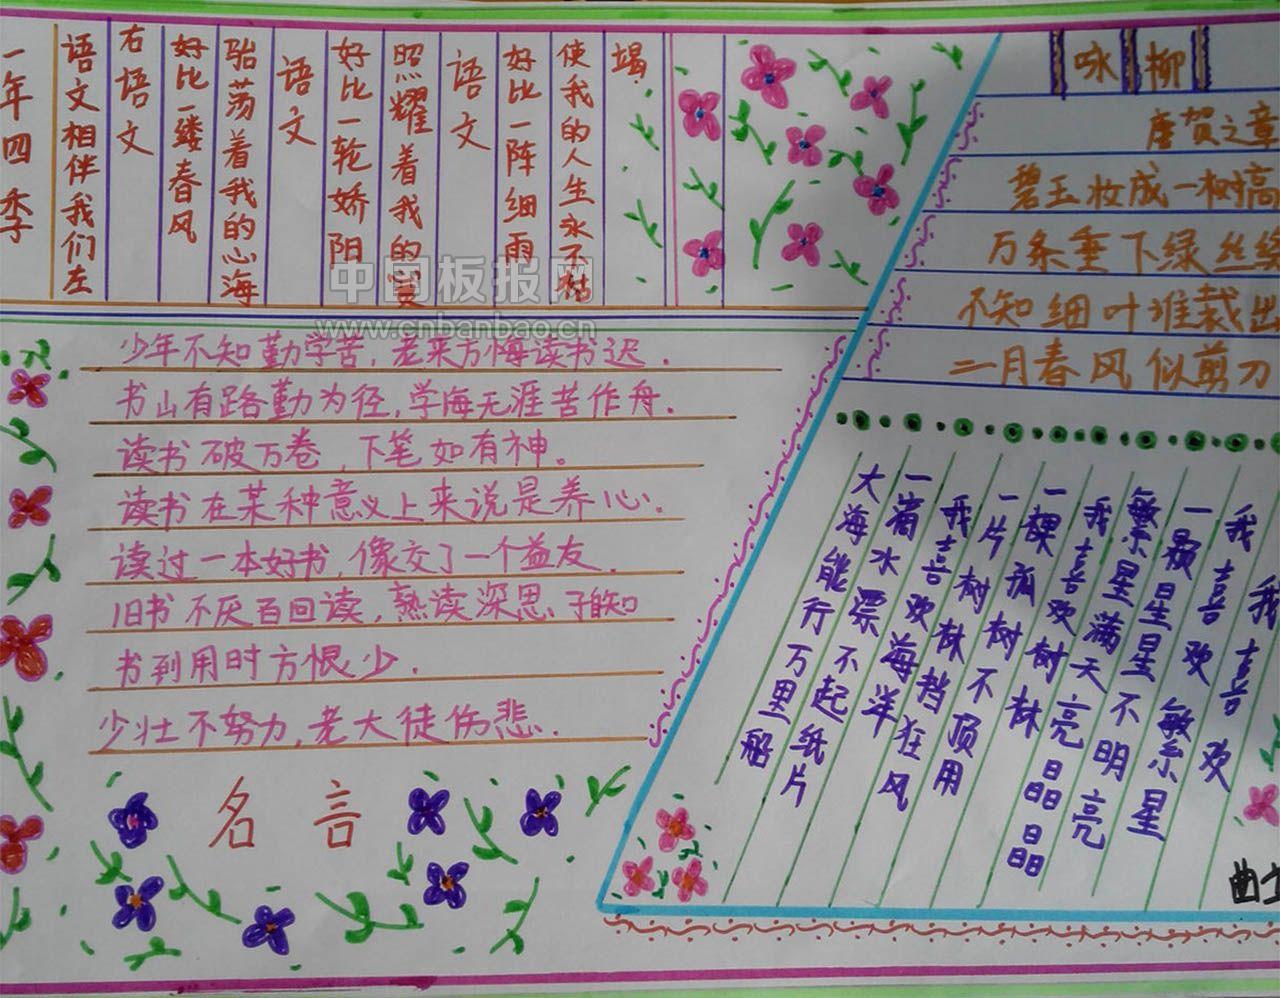 一年四季
语文相伴我们左
右语文
好比一缕春风
骀荡着我的心海
语文
好比一轮娇阳
照耀着我的
语文
好比一阵细雨
使我的人生永不枯
竭
咏柳
唐贺之章
碧玉妆成一树高
万条垂下绿丝
不知细叶谁裁出
二月春风似剪刀
中国板报网
www.cnbanbao.cn
少年不知勤学苦,老来方悔读书迟.
书山有路勤为径,学海无涯苦作舟.
读书破万卷,下笔如有神。
读书在某种意义上来说是养心.
读过一本好书,像交了一个益友.
旧书不厌百回读,熟读深思子自知
书到用时方恨少.
少壮不努力,老大徒伤悲.
名言
我喜欢
我喜欢繁星
一颗星星不明亮
繁星满天亮晶晶
我喜欢树林
一棵孤树不顶用
一片树林挡狂风
我喜欢海洋
一滴水漂不起纸片
大海能行万里船